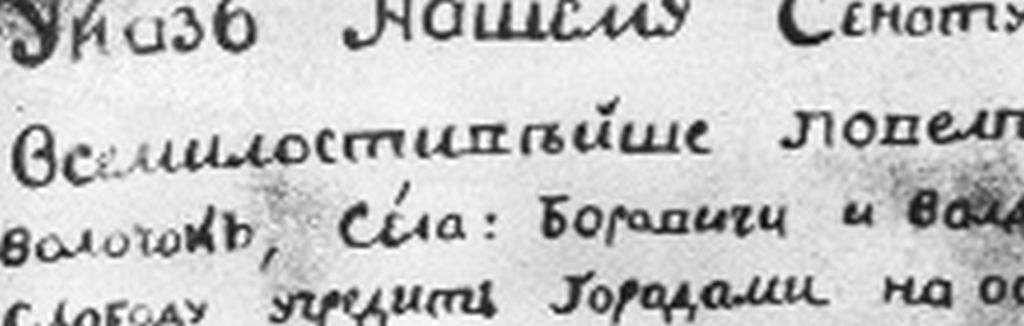 Указъ Нашему Сенату
Всемилостивѣйше повел
волочокъ, Сéла: Боравичи и Валд
слободу учредить Горадами на ос